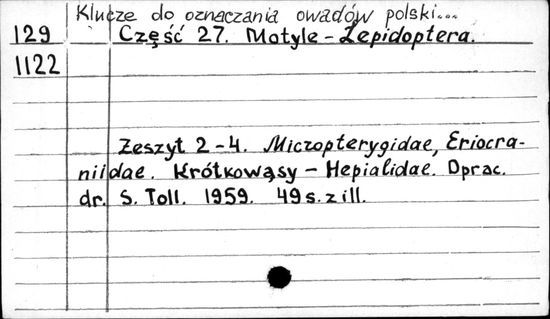 Klucze do oznaczania owadów polski...
129 Część 27. Motyle - Lepidoptera.
1122
Zeszyt 2-4. Micropterygidae, Eriocra-
niidae. Krótkowąsy - Hepialidae. Oprac.
dr. S. Toll. 1959. 49 s. z ill.